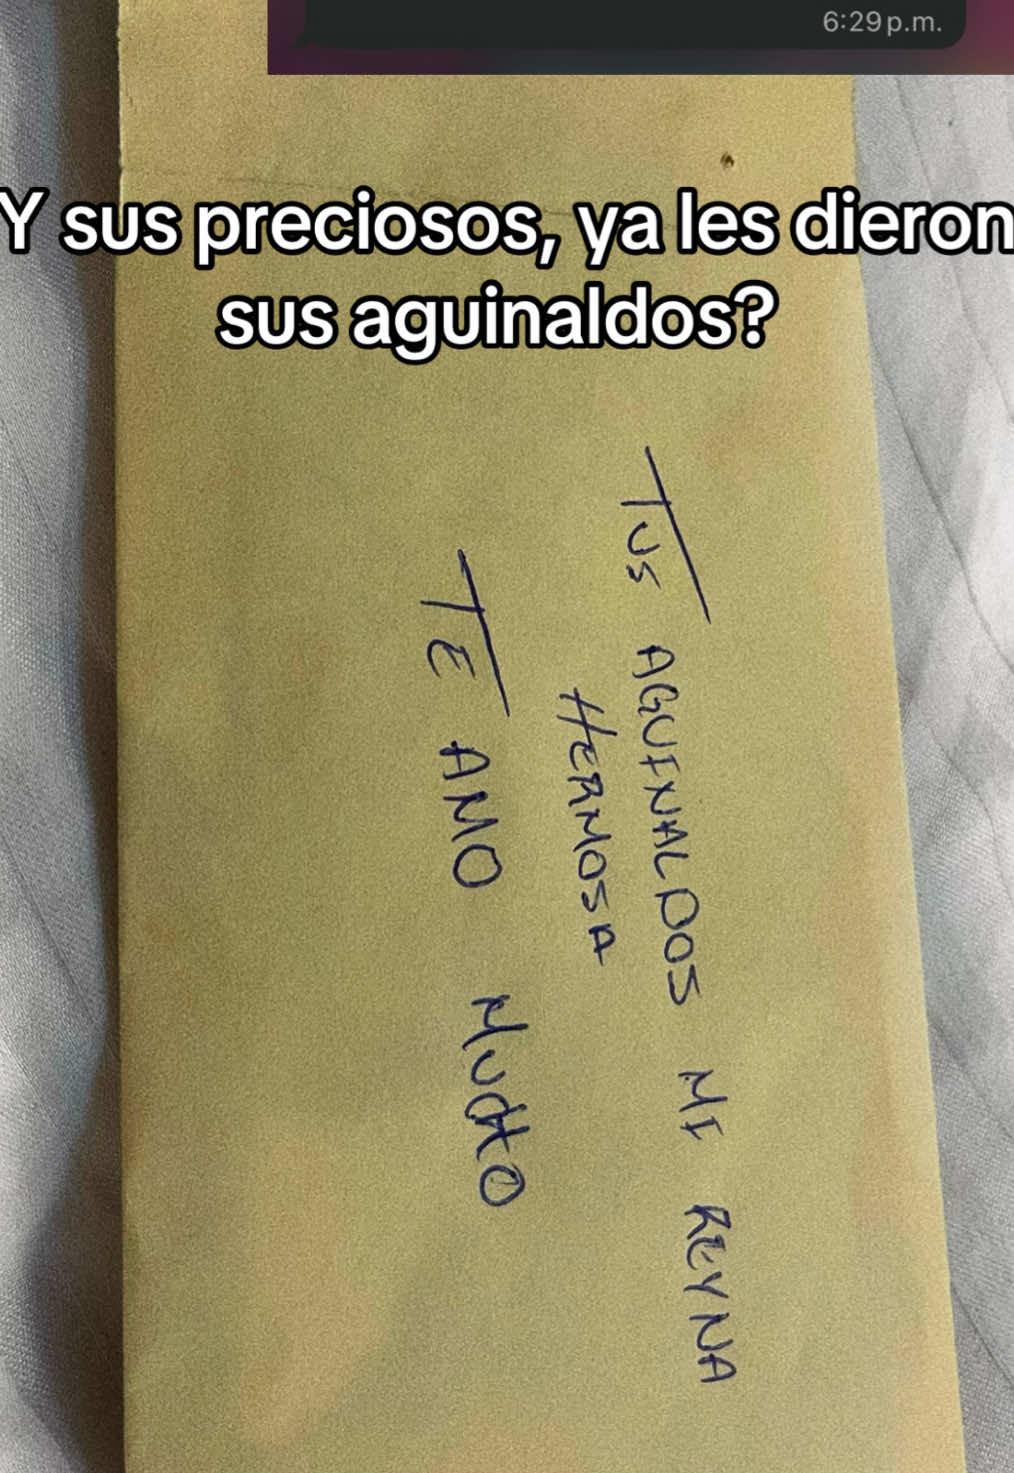 6:29 p.m.
Y sus preciosos, ya les dieron
sus aguinaldos?
TUS AGUINALDOS MI REYNA
HERMOSA
TE AMO MUCHO